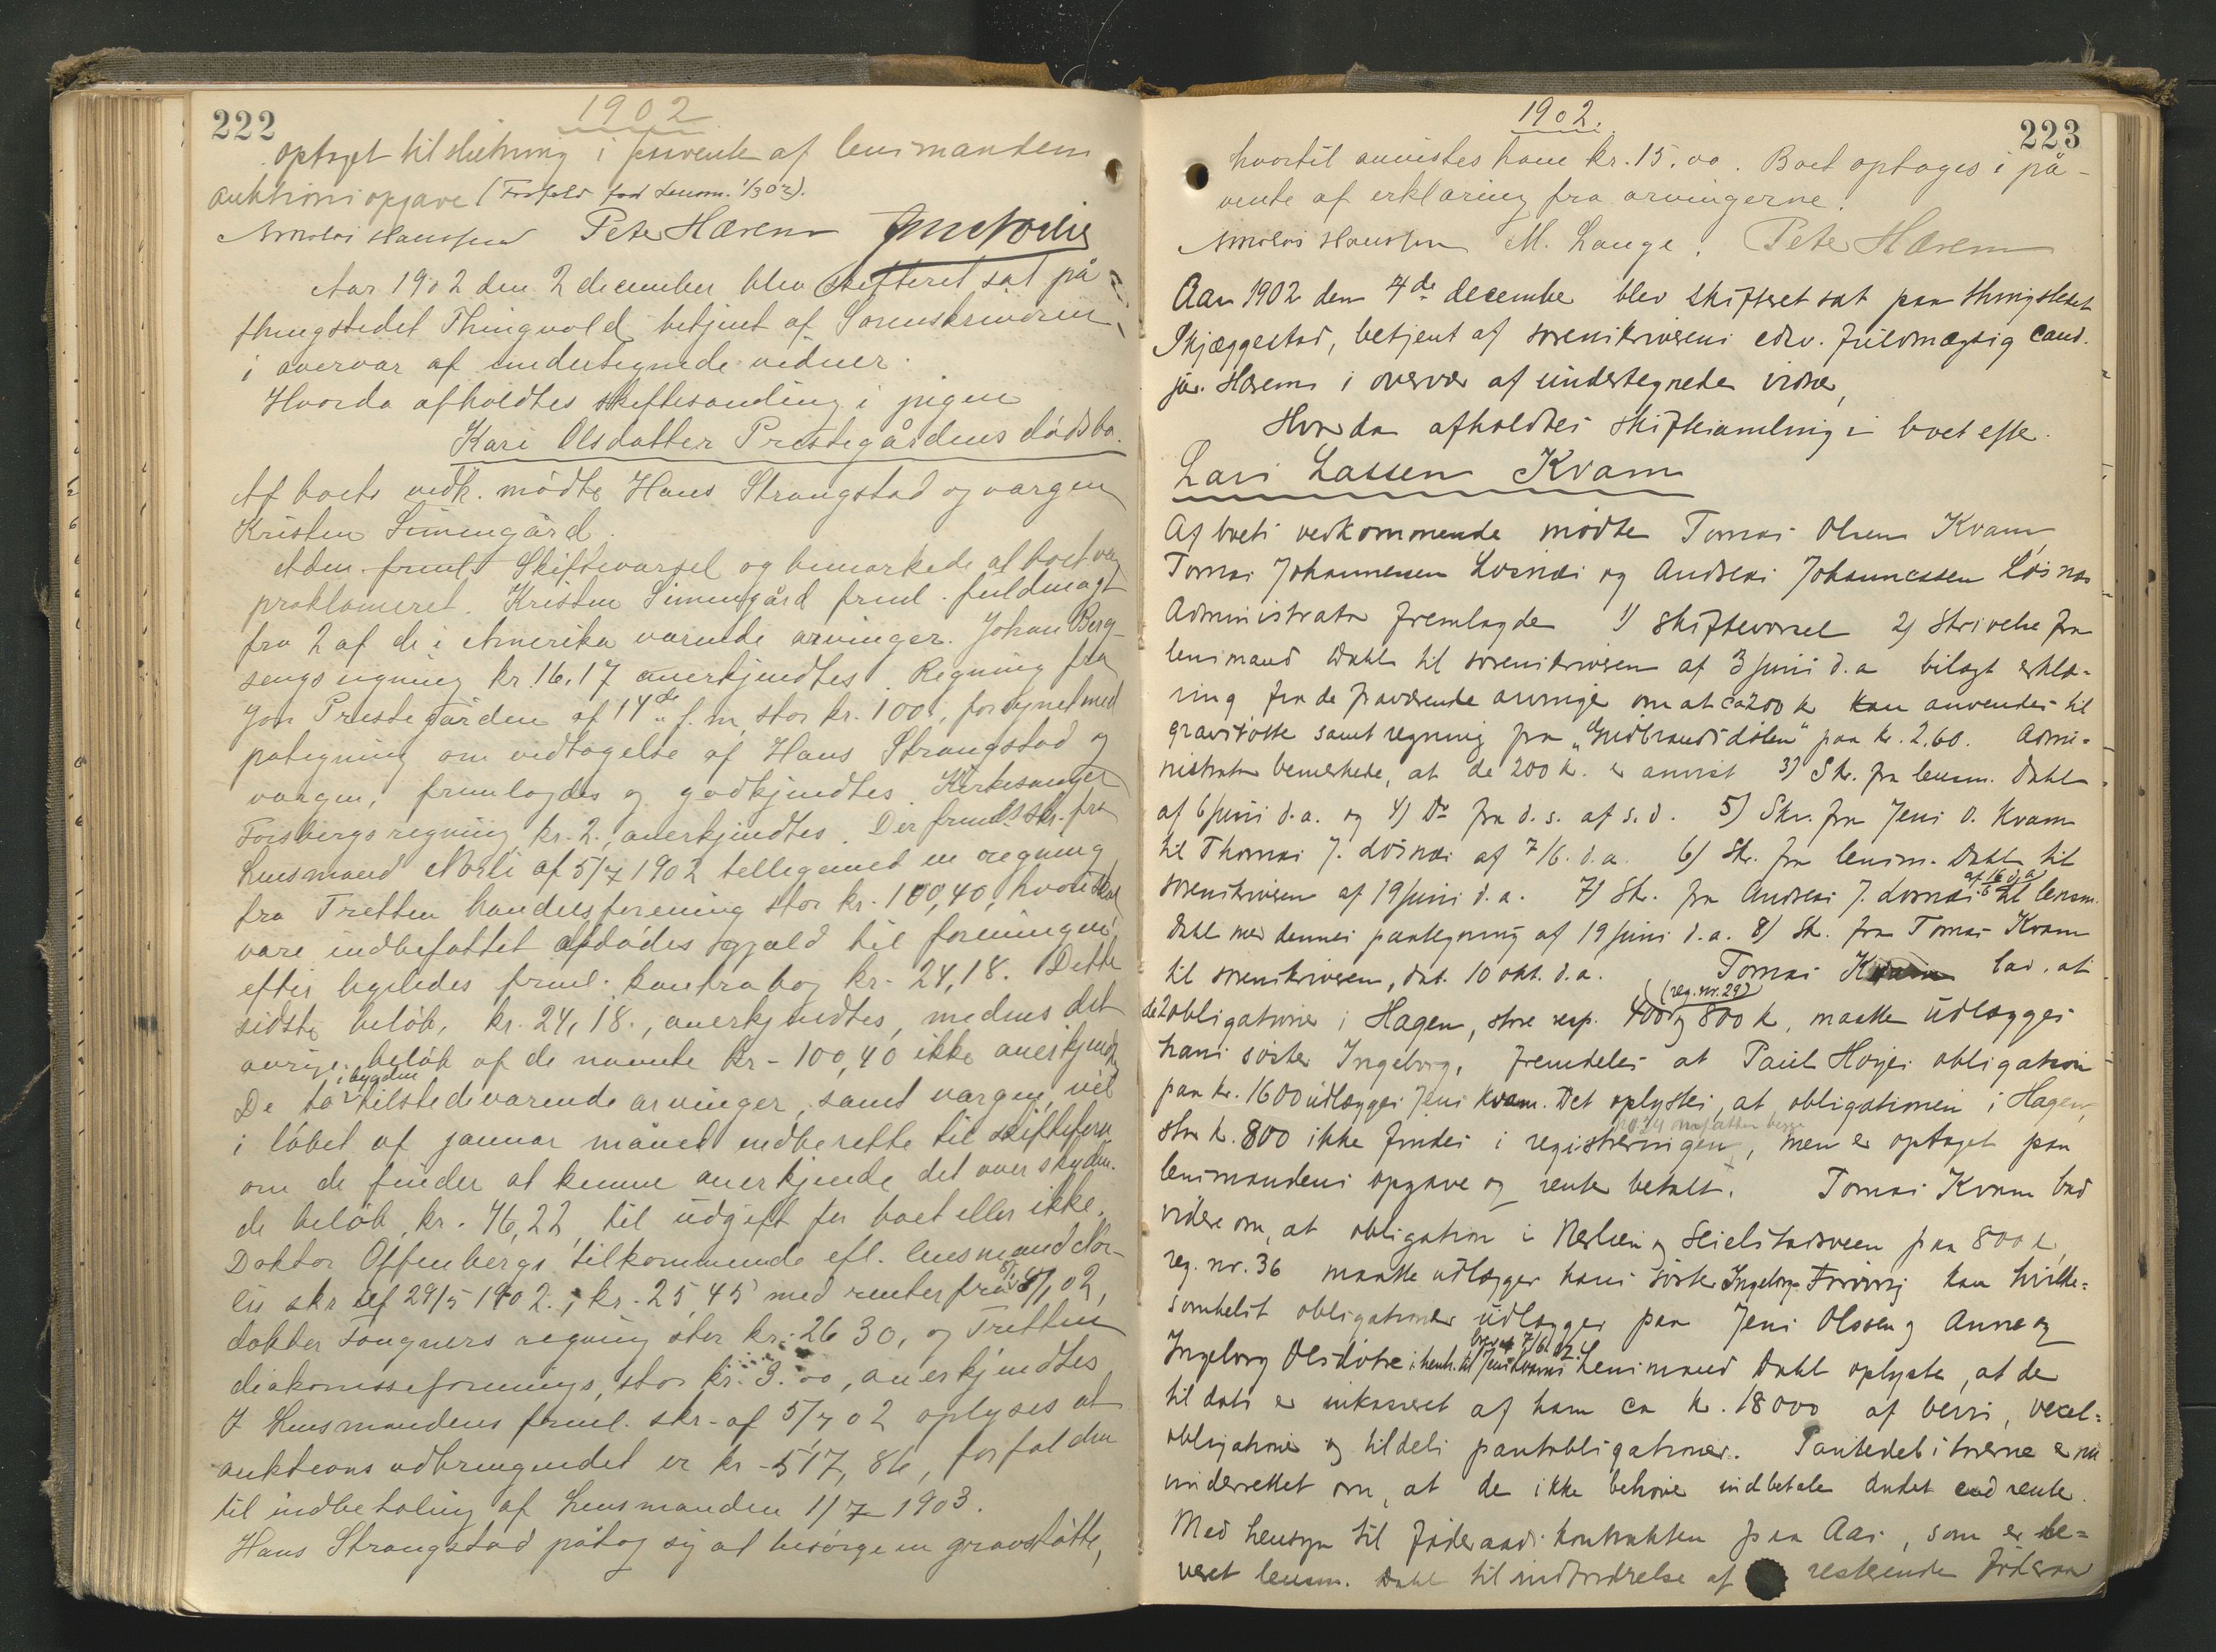 222
1902
optaget til slutning i påvente af lensmandens
auktionsopgave (Forfald fad Lensm. 1/3 03).
Nikolai Hanssen Peter Hærem
Aar 1902 den 2 december blev skifteret sat på
thingstedet Thingvold betjent af Sorenskriveren
i overvær af undertegnede vidner.
Hvorda afholdtes skiftesamling i pigen
Kari Olsdatter Prestegårdens dödsbo.
Af boets vedk. mödte Hans Strangstad og værgen
Kristen Simengård.
Adm. freml. Skiftevarsel og bemærkede at boet var
proklameret. Kristen Simengård freml. fuldmagt
fra 2 af de i Amerika værende arvinger. Johan Berg-
sengs regning kr. 16,17 anerkjendtes. Regning fra
Jon Prestegården af 14de f.m., stor kr. 100, forsynet med
påtegning om vedtagelse af Hans Strangstad og
værgen, fremlagdes og godkjendtes. Kirkesanger
Forsbergs regning, kr. 2, anerkjendtes. Der freml. skr. fra
Lensmand Norli af 5/7 1902 tilligemed en regning
fra Tretten handelsforening stor kr. 100,40, hvori skal
være indbefattet afdödes gjæld til foreningen,
efter ligeledes freml. kontrabog kr. 24,18. Dette
sidste belöb, kr. 24,18., anerkjendtes, medens det
övrige belöb af de nævnte kr. 100,40 ikke anerkjendtes.
De to i bygden tilstedeværende arvinger, samt værgen, vil
i löbet af januar måned indberette til skifteforv.
om de finder at kunne anerkjende det overskyden-
de belöb, kr. 76,22, til udgift for boet eller ikke.
Doktor Offenbergs tilkommende efl. lensmand Nor-
lis skr. af 29/5 1902., kr. 25,45 med renter fra 02,
doktor Fougners regning stor kr. 26 30, og Tretten
diakonisseforenings, stor kr. 9.00, anerkjendtes
I Lensmandens freml. skr. af 5/7 02 oplyses at
auktions udbringendet er kr. 517,86, forfalden
til indbetaling af Lensmanden 1/7 1903.
Hans Strangstad påtog sig at besörge en gravstötte,
1902.
223
hvortil anvistes ham kr. 15.00. Boet optages i på-
vente af erklæring fra arvingerne.
Nikolai Hanssen M. Lange. Peter Hærem
Aar 1902 den 4de december blev skifteret sat paa thingstedet
Skjæggestad, betjent af sorenskriverens edsv. fuldmægtig cand.
jur. Hærem i overvær af undertegnede vidner,
Hvorda afholdtes skiftesamling i boet efter
Lars Larsen Kvam
Af boets vedkommende mödte Tomas Olsen Kvam,
Tomas Johannessen Losnæs og Andreas Johannessen Losnæs
Administrator fremlagde 1) skiftevarsel 2) skrivelse fra
lensmand Dahl til sorenskriveren af 3 juni d.a. bilagt erklæ-
ring fra de fraværende arvinger om at ca 200 kr kan anvendes til
gravstötte samt regning fra "Gudbrandsdölen" paa kr. 2,60. Admi-
nistrator bemerkede, at de 200 kr. er anvist 3) Skr. fra lensm. Dahl
af 6 juni d.a. og 4) Do fra d.s. af s.d. 5) Skr. fra Jens O. Kvam
til Thomas J. Losnæs af 7/6 d.a. 6) Skr. fra lensm. Dahl til
sorenskriveren af 19 juni d.a. 7) Skr. fra Andreas J. Losnæs af 16/6 d.a. til lensm.
Dahl med dennes paategning af 19 juni d.a. 8) Skr. fra Tomas Kvam
til sorenskriveren, dat. 10 okt. d.a. Tomas Kvam bad, at
de 2 obligationer i Hagen, store resp. 400 (reg. nr. 29) og 800 kr, maatte udlægges
hans söster Ingeborg, fremdeles at Paul Horjes obligation
paa kr. 1600 udlægges Jens Kvam. Det oplystes, at obligationen i Hagen,
stor kr. 800 ikke findes i registreringen, men er optaget paa
lensmandens opgave og rente betalt. Tomas Kvam bad
videre om, at obligation i Nerlien og Seielstadsveen paa 800 kr,
reg. nr. 36 maatte udlægges hans söster Ingeborg. Forövrig kan hvilke-
somhelst obligationer udlægges paa Jens Olssen og Anne og
Ingeborg Olsdötre i henh. til Jens Kvams brev af 7/6 02. Lensmand Dahl oplyste, at de
til dato er inkasseret af ham ca kr. 18000 af bevis, vexel-
obligationer og tildels pantobligationer. Pantedebitorerne er nu
underrettet om, at de ikke behöver indbetale andet end rente.
Med hensyn til föderaadskontrakten paa Aas, som er le-
veret lensm. Dahl til indfordrelse af resterende föderaad